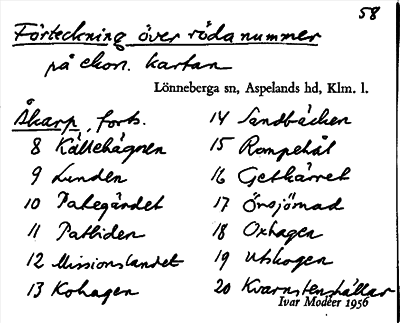 58
Förteckning över röda nummer
på ekon. kartan
Lönneberga sn, Aspelands hd, Klm. l.
Åkarp, forts.
8 Källehägnen
9 Lunden
10 Pategärdet
11 Patliden
12 Missionslandet
13 Kohagen
14 Sandbäcken
15 Rompehål
16 Getkärret
17 Önsjömad
18 Oxhagen
19 Utskogen
20 Kvarnstenshällar
Ivar Modéer 1956